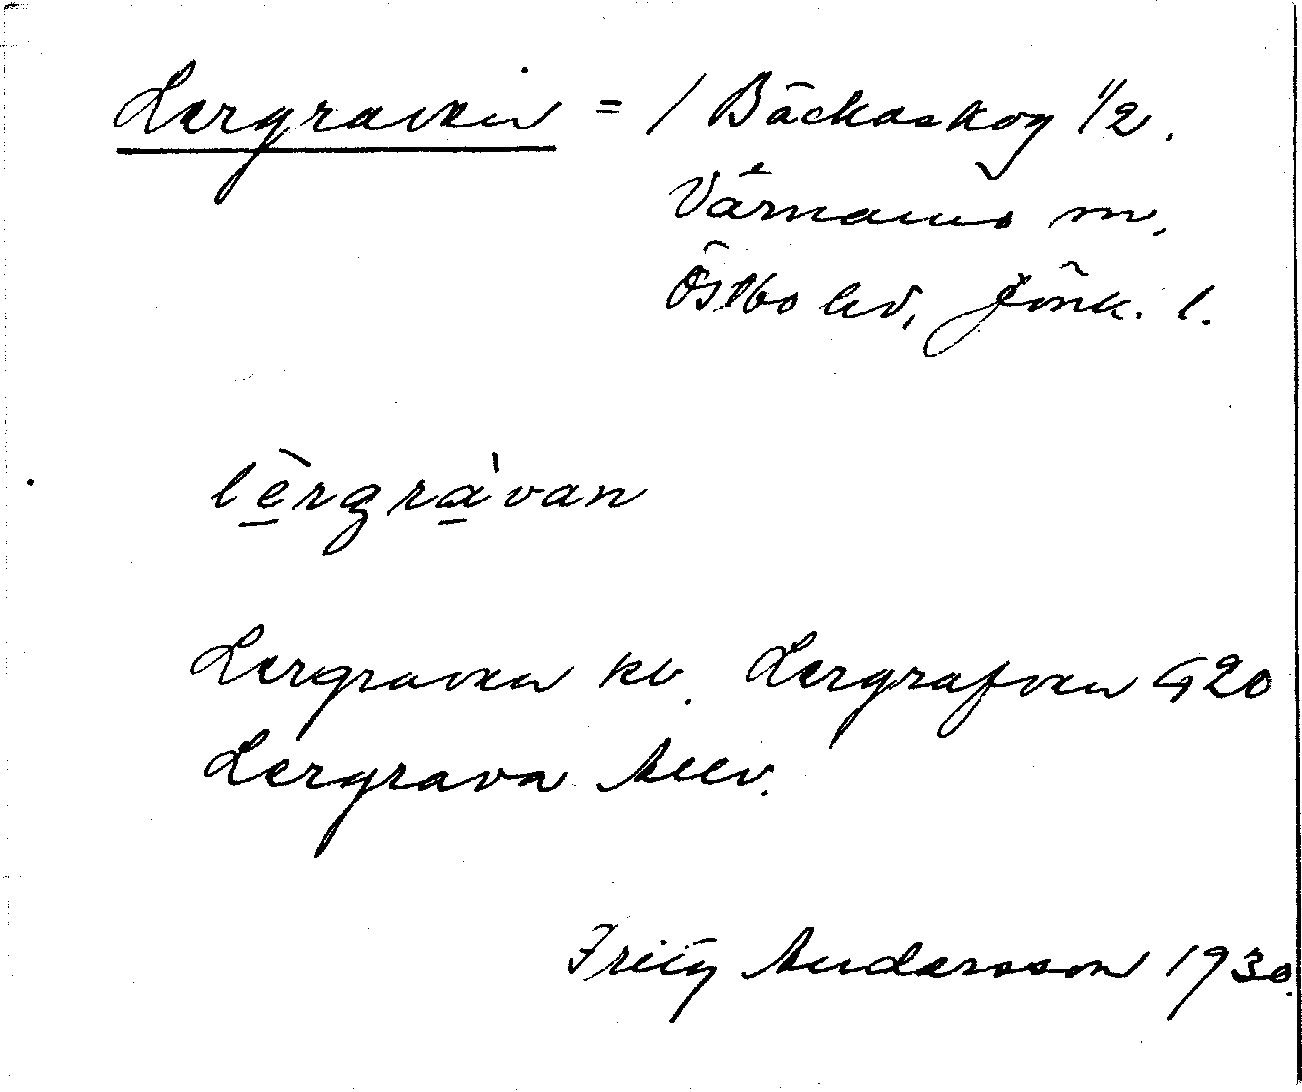 Lergraven = / Bäckaskog 1/2.
Värnamo m.
Östbo hd, Jönk. l.
lèrgràvan
Lergraven kv. Lergrafven G20
Lergrava
Fritz Andersson 1930.